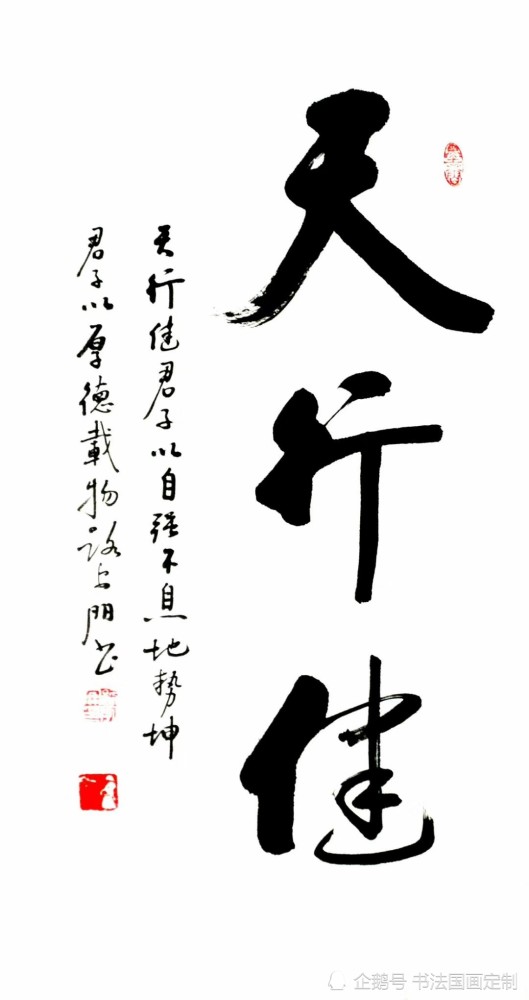 天行健
天行健君子以自强不息地勢坤
君子以厚德載物路
企鹅号 书法国画定制